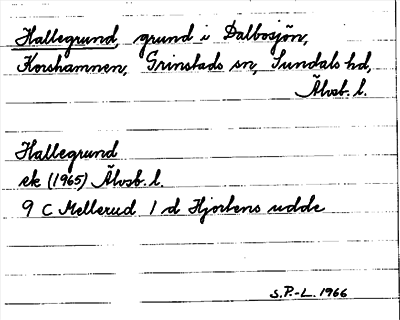 Hallegrund, grund i Dalbosjön,
Korshamnen, Grinstads sn, Sundals hd,
Älvsb. l.
Hallegrund
ek (1965) Älvsb. l.
9 C Mellerud 1 d Hjortens udde
S.P.-L. 1966